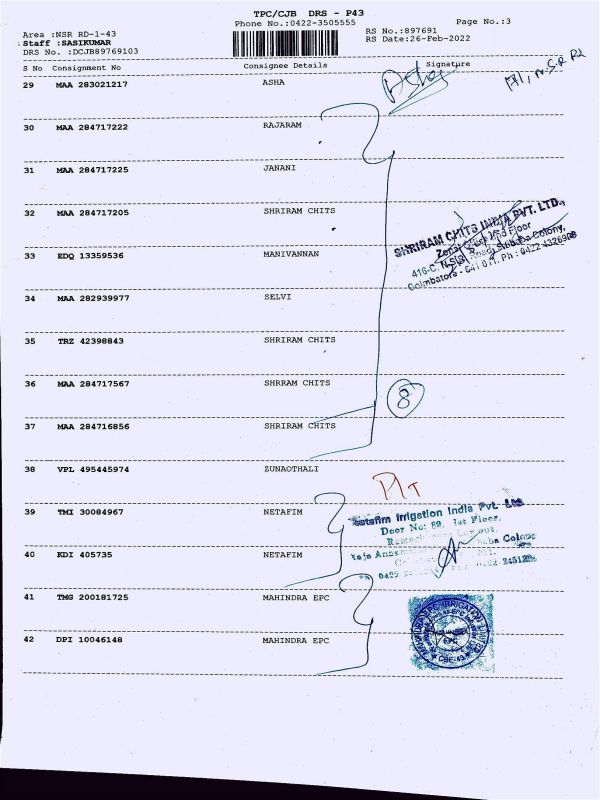 TPC/CJB DRS - P43
Phone No.:0422-3505555 Page No.:3
Area :NSR RD-1-43 RS No.:897691
Staff :SASIKUMAR RS Date:26-Feb-2022
DRS No. :DCJB89769103
S No Consignment No Consignee Details Signature
29 MAA 283021217 ASHA
30 MAA 284717222 RAJARAM
31 MAA 284717225 JANANI
32 MAA 284717205 SHRIRAM CHITS
SHRIRAM CHITS INDIA PVT. LTD.,
416-C, N.S.R. Road, Saibaba Colony,
Coimbatore - 641 011. Ph : 0422-4326908
33 EDQ 13359536 MANIVANNAN
34 MAA 282939977 SELVI
35 TRZ 42398843 SHRIRAM CHITS
36 MAA 284717567 SHRRAM CHITS
8
37 MAA 284716856 SHRIRAM CHITS
38 VPL 495445974 ZUNAOTHALI
39 TMI 30084967 NETAFIM
Netafim Irrigation India Pvt. Ltd.
Door No: 89, 1st Floor,
40 KDI 405735 NETAFIM
41 TMG 200181725 MAHINDRA EPC
42 DPI 10046148 MAHINDRA EPC